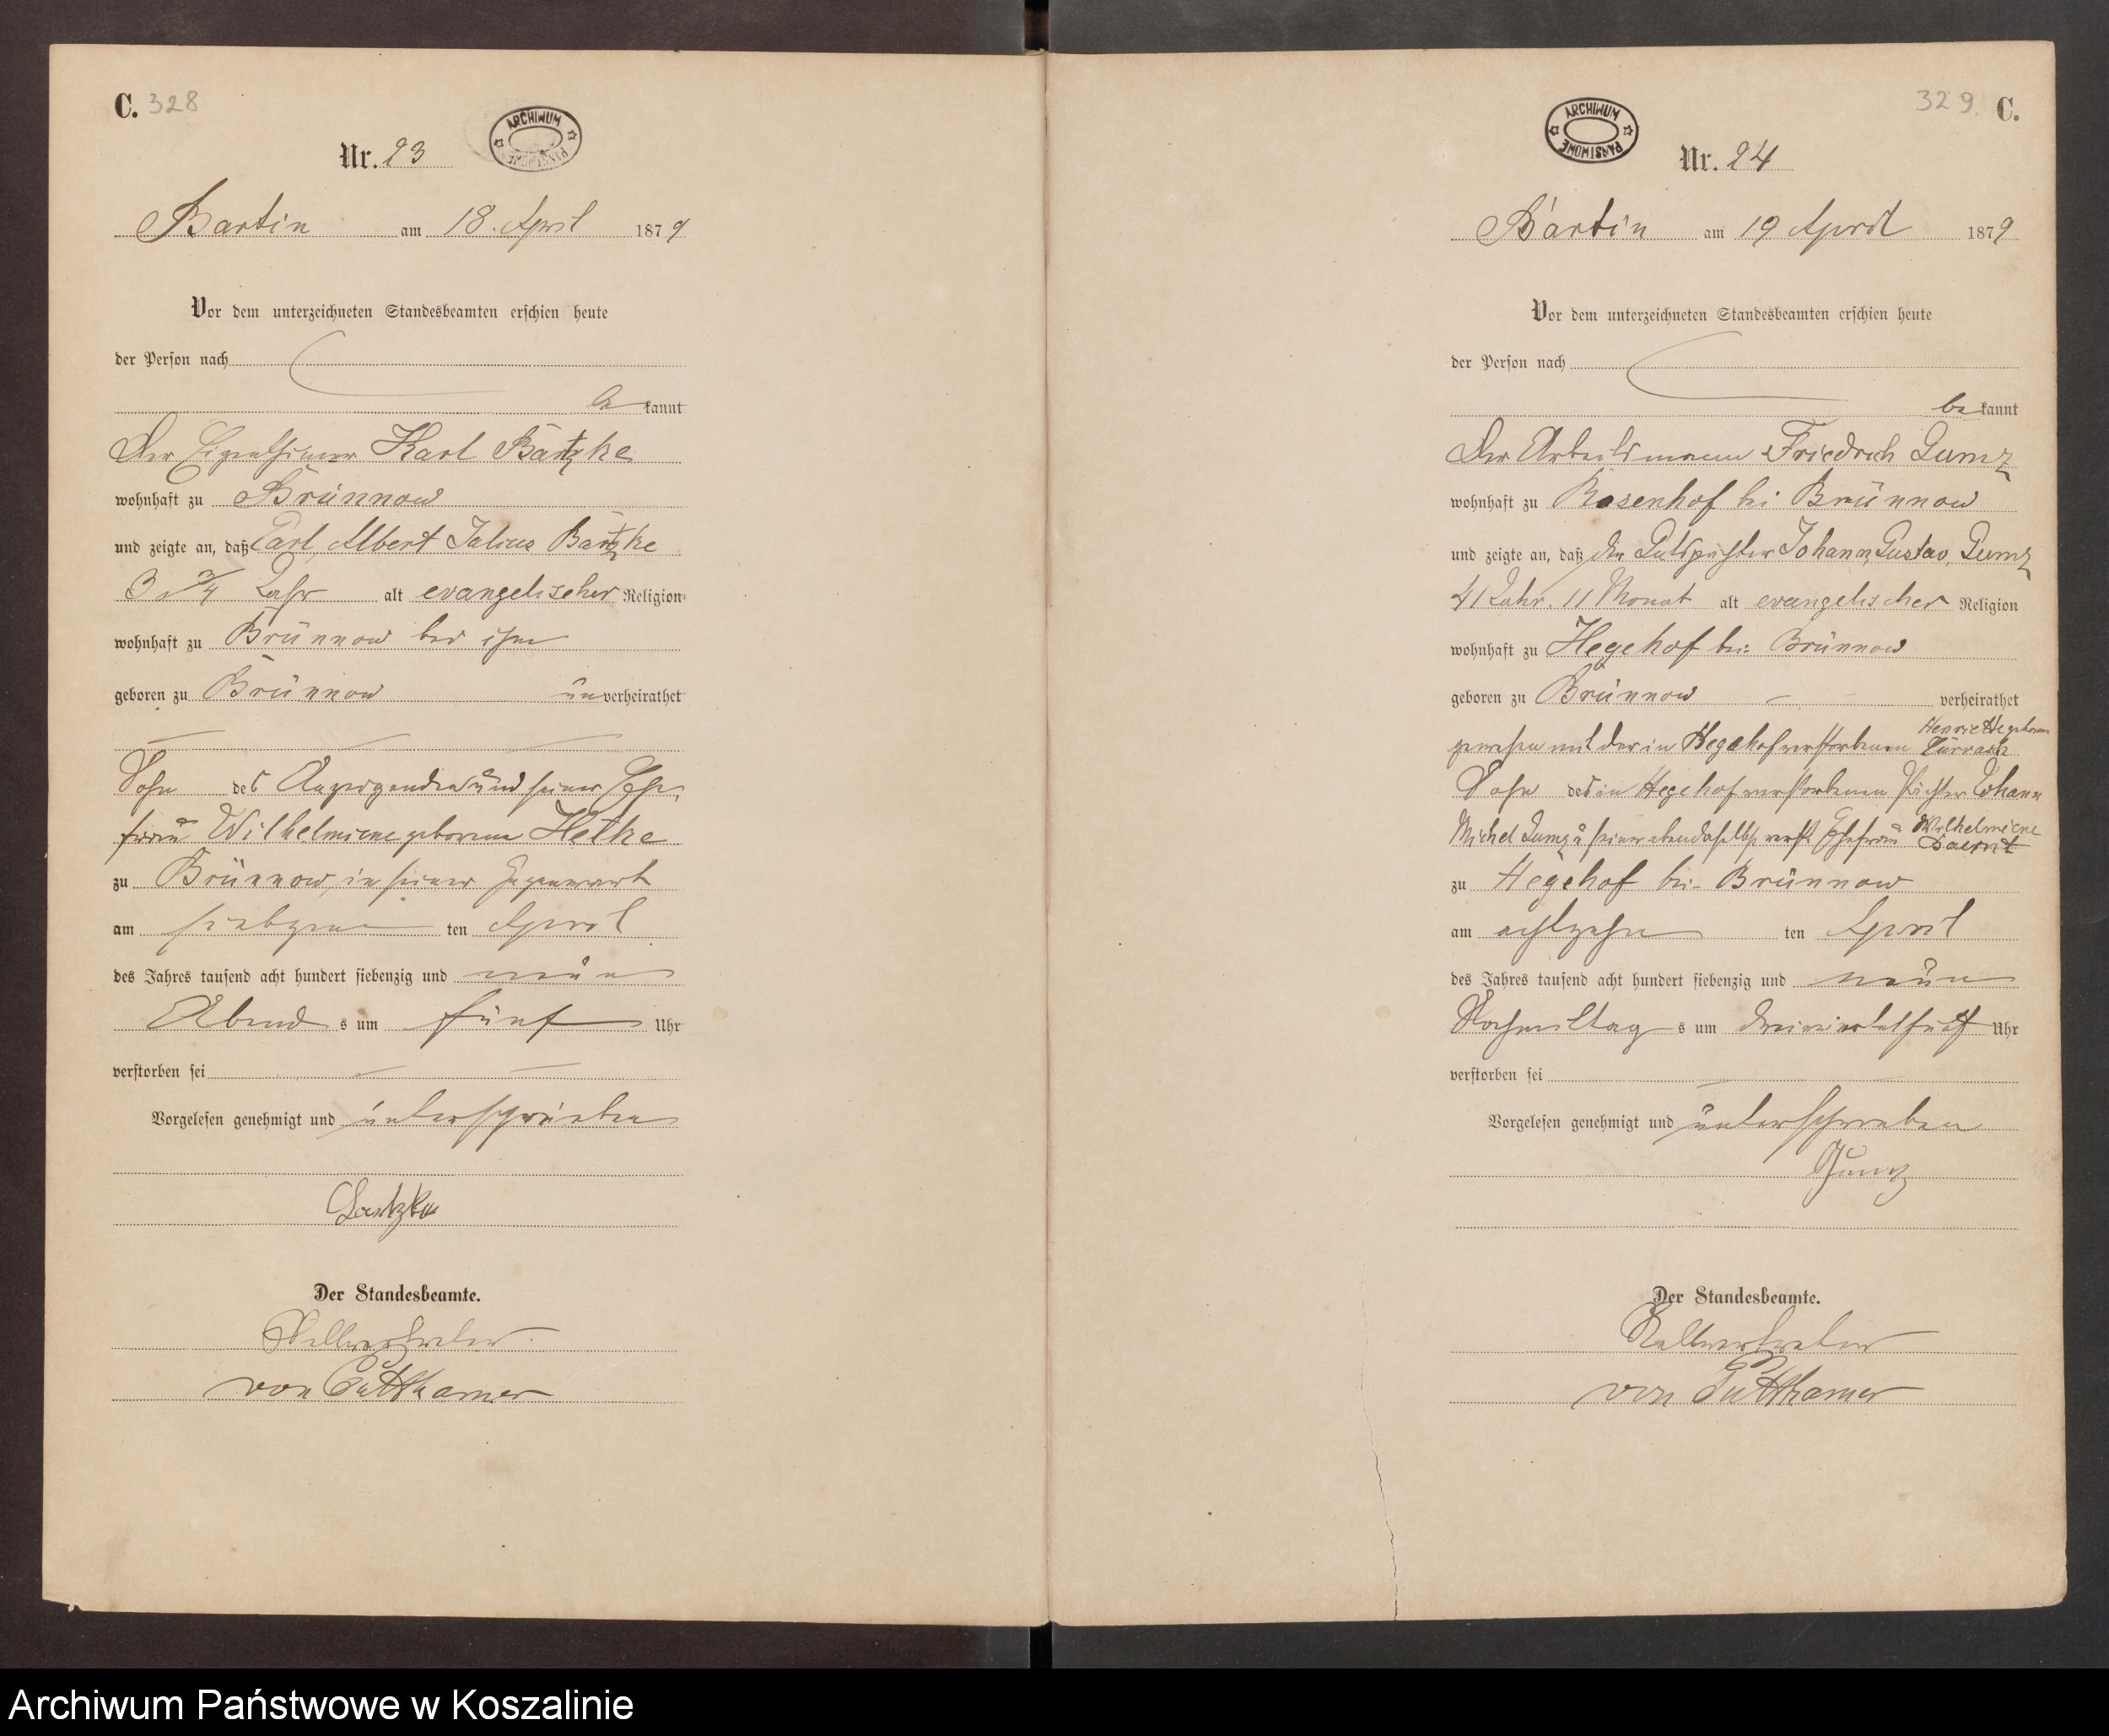 C. 328
ARCHIWUM PAŃSTWOWE
Nr. 23
Bartin am 18. April 1879
Vor dem unterzeichneten Standesbeamten erschien heute
der Person nach
be kannt
Der Eigenthümer Karl Bartzke
wohnhaft zu Brünnow
und zeigte an, daß Carl Albert Julius Bartzke
3 3/4 Jahr alt evangelischer Religion
wohnhaft zu Brünnow bei ihm
geboren zu Brünnow unverheirathet
Sohn des Anzeigenden und seiner Ehe,
frau Wilhelmine geborene Hetke
zu Brünnow, in seiner Gegenwart
am siebzehn ten April
des Jahres tausend acht hundert siebenzig und neun
Abend s um fünf Uhr
verstorben sei
Vorgelesen genehmigt und unterschrieben
Bartzke
Der Standesbeamte.
Stellvertreter
von Puttkamer
329. C.
ARCHIWUM PAŃSTWOWE
Nr. 24
Bartin am 19 April 1879
Vor dem unterzeichneten Standesbeamten erschien heute
der Person nach
be kannt
Der Arbeitsmann Friedrich Gumz
wohnhaft zu Rosenhof bei Brünnow
und zeigte an, daß der Gutspächter Johann, Gustav, Gumz
41 Jahr. 11 Monat alt evangelischer Religion
wohnhaft zu Hegehof bei Brünnow
geboren zu Brünnow verheirathet
gewesen mit der in Hegehof verstorbenen Henriette geborene
Sohn des in Hegehof verstorbenen Pächter Johann
Michel Gumz u seiner ebendaselbst verst. Ehefrau Wilhelmiene
zu Hegehof bei Brünnow
am achtzehn ten April
des Jahres tausend acht hundert siebenzig und neun
Nachmittag s um dreiviertelfünf Uhr
verstorben sei
Vorgelesen genehmigt und unterschrieben
Gumz
Der Standesbeamte.
Stellvertreter
von Puttkamer
Archiwum Państwowe w Koszalinie